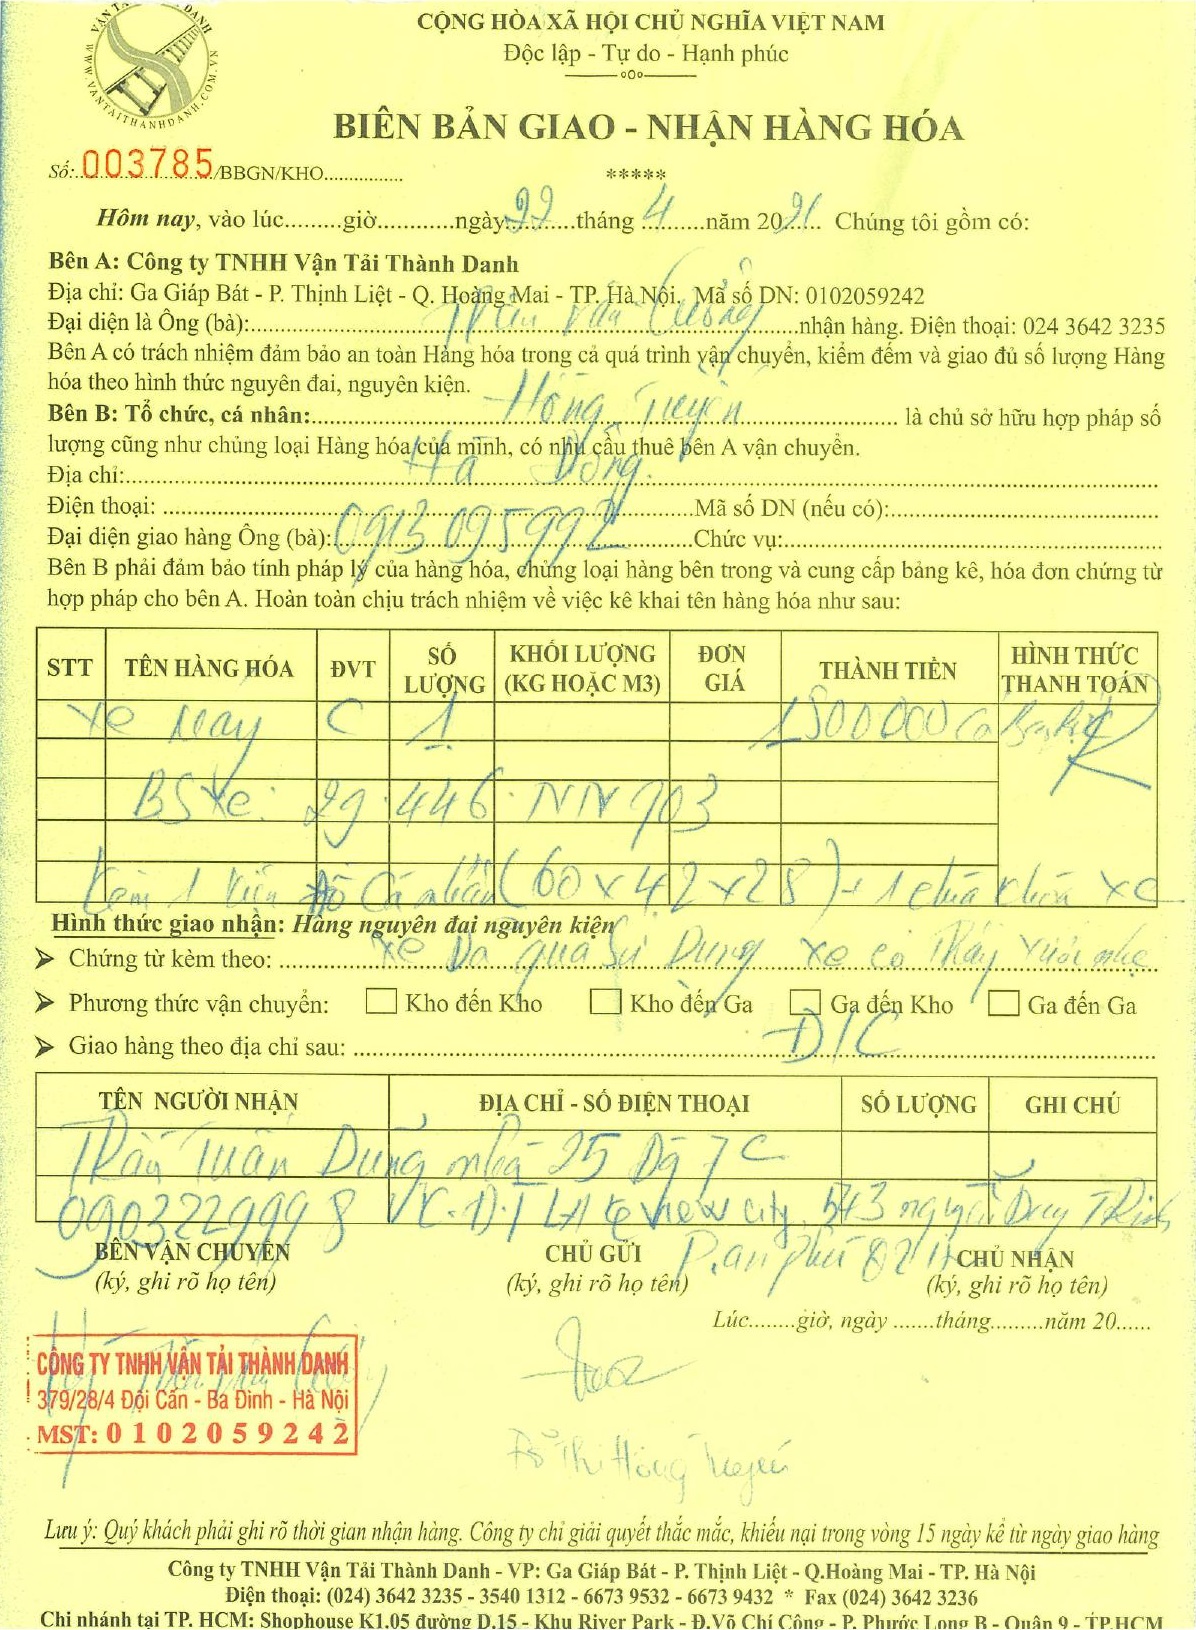 WWW.VANTAITHANHDANH.COM.VN
CỘNG HÒA XÃ HỘI CHỦ NGHĨA VIỆT NAM
Độc lập - Tự do - Hạnh phúc
BIÊN BẢN GIAO - NHẬN HÀNG HÓA
Số: 003785/BBGN/KHO................
*****
Hôm nay, vào lúc.........giờ............ngày 22 tháng 4 năm 2021 Chúng tôi gồm có:
Bên A: Công ty TNHH Vận Tải Thành Danh
Địa chỉ: Ga Giáp Bát - P. Thịnh Liệt - Q. Hoàng Mai - TP. Hà Nội. Mã số DN: 0102059242
Đại diện là Ông (bà): Trần Văn Cường nhận hàng. Điện thoại: 024 3642 3235
Bên A có trách nhiệm đảm bảo an toàn Hàng hóa trong cả quá trình vận chuyển, kiểm đếm và giao đủ số lượng Hàng
hóa theo hình thức nguyên đai, nguyên kiện.
Bên B: Tổ chức, cá nhân: Hồng Tuyến là chủ sở hữu hợp pháp số
lượng cũng như chủng loại Hàng hóa của mình, có nhu cầu thuê bên A vận chuyển.
Địa chỉ: Hà Đông.
Điện thoại: ................ Mã số DN (nếu có):................
Đại diện giao hàng Ông (bà): 0913095992 Chức vụ:................
Bên B phải đảm bảo tính pháp lý của hàng hóa, chủng loại hàng bên trong và cung cấp bảng kê, hóa đơn chứng từ
hợp pháp cho bên A. Hoàn toàn chịu trách nhiệm về việc kê khai tên hàng hóa như sau:
STT TÊN HÀNG HÓA ĐVT SỐ LƯỢNG KHỐI LƯỢNG (KG HOẶC M3) ĐƠN GIÁ THÀNH TIỀN HÌNH THỨC THANH TOÁN
Xe máy C 1 1500000
BS Xe: 29.446.NN703
Kèm 1 kiện đồ cá nhân (60 x 42 x 28) + 1 chìa khóa xe
Hình thức giao nhận: Hàng nguyên đai nguyên kiện
Chứng từ kèm theo: Xe Đã qua Sử Dụng xe có Trầy xước nhẹ
Phương thức vận chuyển: Kho đến Kho Kho đến Ga Ga đến Kho Ga đến Ga
Giao hàng theo địa chỉ sau: Đ/C
TÊN NGƯỜI NHẬN ĐỊA CHỈ - SỐ ĐIỆN THOẠI SỐ LƯỢNG GHI CHÚ
Trần Tuấn Dũng nhà 25 Dg 7C
0903229998 Lake view city, 543 nguyễn Duy Trinh
P. an phú Q2
BÊN VẬN CHUYỂN CHỦ GỬI CHỦ NHẬN
(ký, ghi rõ họ tên) (ký, ghi rõ họ tên) (ký, ghi rõ họ tên)
Lúc........giờ, ngày .......tháng.........năm 20......
CÔNG TY TNHH VẬN TẢI THÀNH DANH
379/28/4 Đội Cấn - Ba Đình - Hà Nội
MST: 0102059242
Đỗ Thị Hồng Tuyến
Lưu ý: Quý khách phải ghi rõ thời gian nhận hàng. Công ty chỉ giải quyết thắc mắc, khiếu nại trong vòng 15 ngày kể từ ngày giao hàng
Công ty TNHH Vận Tải Thành Danh - VP: Ga Giáp Bát - P. Thịnh Liệt - Q.Hoàng Mai - TP. Hà Nội
Điện thoại: (024) 3642 3235 - 3540 1312 - 6673 9532 - 6673 9432 * Fax (024) 3642 3236
Chi nhánh tại TP. HCM: Shophouse K1.05 đường D.15 - Khu River Park - Đ.Võ Chí Công - P. Phước Long B - Quận 9 - TP.HCM